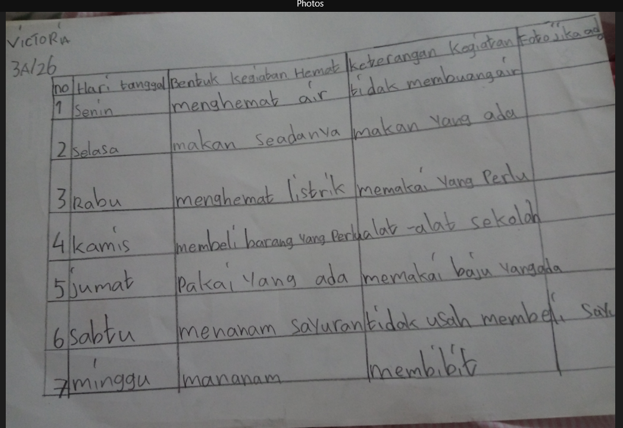 Photos
VICTORIA
3A/26
no Hari tanggal Bentuk kegiatan Hemat keterangan kegiatan Foto jika ada
1 Senin menghemat air tidak membuang air
2 selasa makan seadanya makan yang ada
3 Rabu menghemat listrik memakai yang Perlu
4 kamis membeli barang yang Perlu alat-alat sekolah
5 jumat Pakai yang ada memakai baju yang ada
6 sabtu menanam sayuran tidak usah membeli sayu
7 minggu mananam membibit